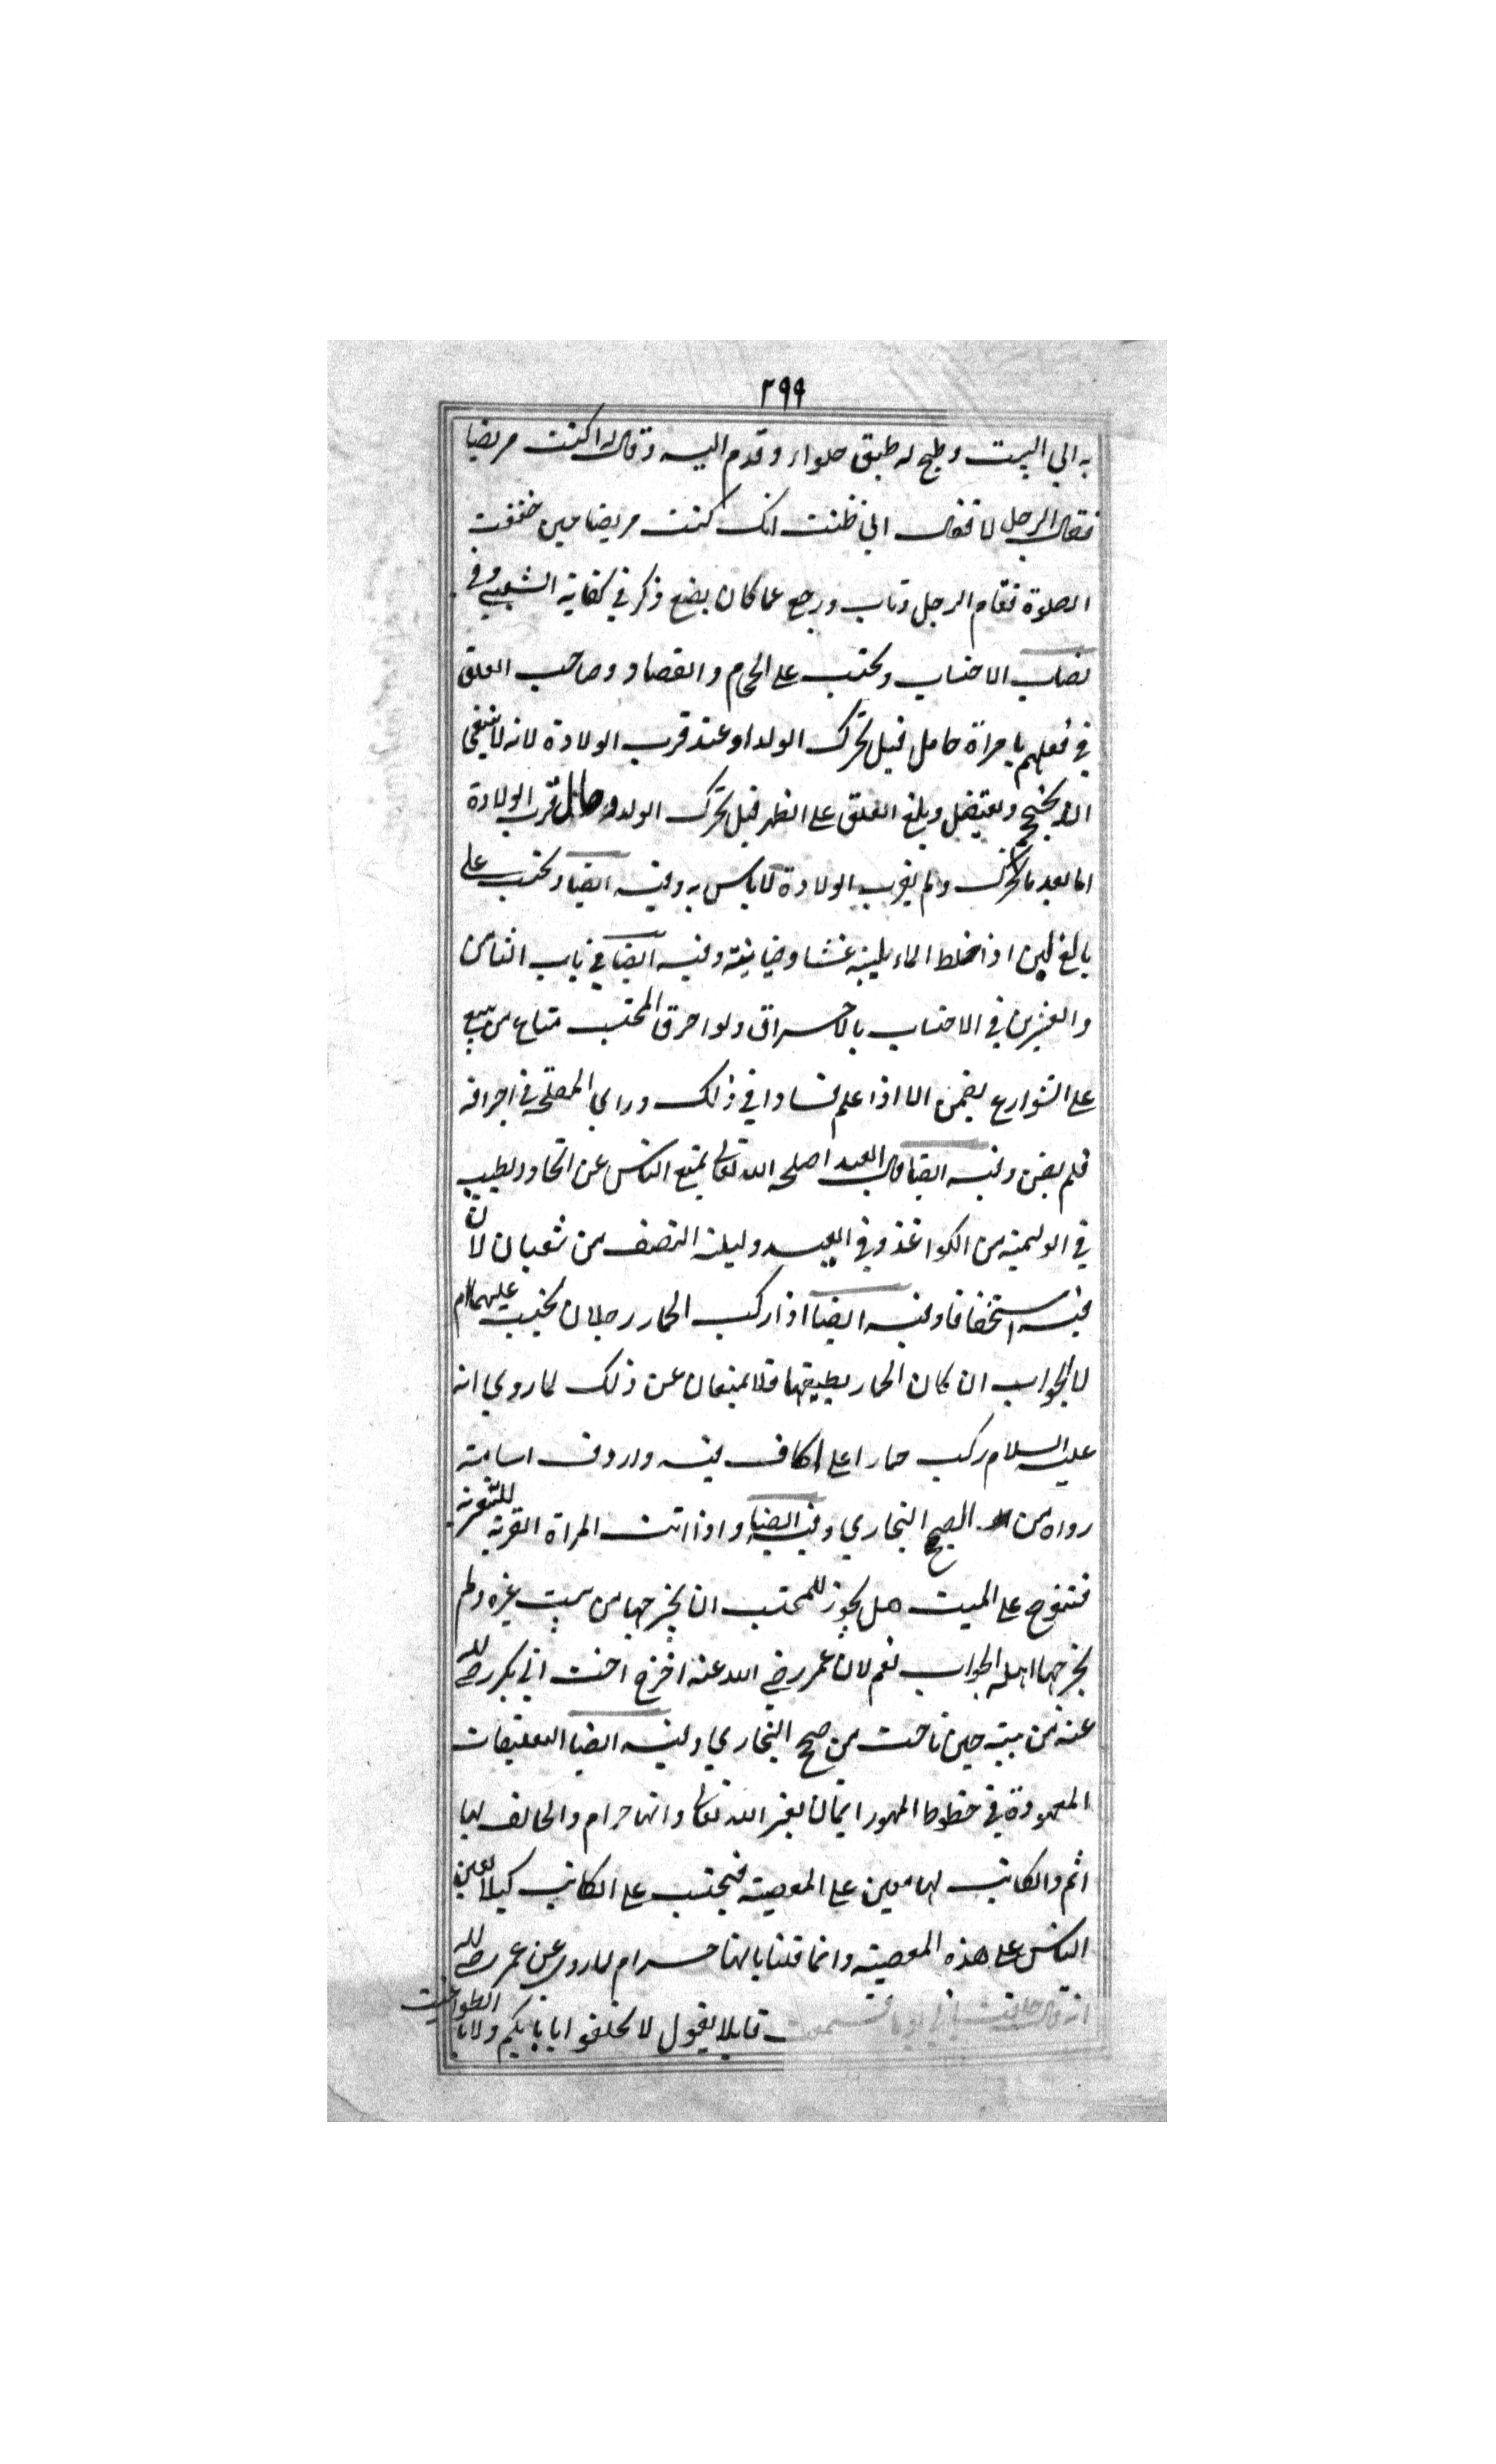 ٢٩٩
به الي البيت وطبخ له طبق حلواء وقدم اليه وقال له اكنت مريضا
فقال الرجل لا فقال اني ظننت انك كنت مريضا حين خففت
الصلوة فقام الرجل وتاب ورجع عما كان يضع ذكر في كفاية الشعبي وفي
نصاب الاحتساب ويحتسب على الحجام والفصاد وصاحب العلق
في فعلهم بامراة حامل قبل تحرك الولد او عند قرب الولادة لانه لا ينبغي
ان يحتجم ويفتصل ويلغ العلق على الظهر قبل تحرك الولد قرب الولادة
اما بعد ما تحرك ولم يقرب الولادة لا باس به وفيه ايضا ويحتسب على
بايع لبن اذا خلط الماء بلبنه غشا وخيانة وفيه ايضا في باب الثامن
والعشرين في الاحتساب بالاحراق ولو احرق المحتسب متاع من يبيع
على الشوارع يضمن الا اذا علم فسادا في ذالك وراي المصلحة في احراقه
فلم يضمن وفيه ايضا قال العبد اصلحه الله تعالى يمنع الناس عن اتخاذ
في الوليمة من الكواغذ وفي العيد وليلة النصف من شعبان لان
فيه استخفافا وفيه ايضا اذا ركب الحمار رجلان يحتسب عليهما ام
لا الجواب ان كان الحمار يطيقهما فلا يمنعان عن ذلك لما روي انه
عليه السلام ركب حمارا على اكاف فيه واردف اسامة
رواه من الصحيح البخاري وفيه ايضا واذا اتت المراة القرية للتعزية
فتنوح على الميت هل يجوز للمحتسب ان يخرجها من بيت غيره ولم
يخرجها اهله الجواب نعم لان عمر رضي الله عنه اخرج اخت ابي بكر رضي الله
عنه من بيته حين ناحت من صحيح البخاري وفيه ايضا التعليقات
المعهودة في خطوط المهور ايمان لغير الله تعالى وانها حرام والحالف بها
اثم والكاتب لها معين على المعصية فيحتسب على الكاتب كيلا يعين
الناس على هذه المعصية وانما قلنا بانها حرام لما روي عن عمر رضي الله
انه قال حلفت بابي يوما فسمعت قايلا يقول لا تحلفوا بابايكم ولا بالطواغيت